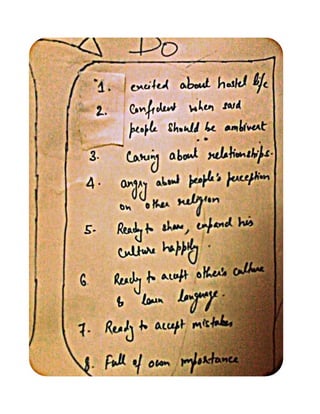 Do
1. excited about hostel life
2. Confident when said
people should be ambivert
3. Caring about relationships.
4. angry about people's perception
on other religion
5. Ready to share, expand his
culture happily.
6 Ready to accept other's culture
& learn language.
7. Ready to accept mistakes
8. Full of own importance